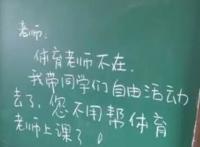 老师:
体育老师不在.
我带同学们自由活动
去了,您不用帮体育
老师上课了。